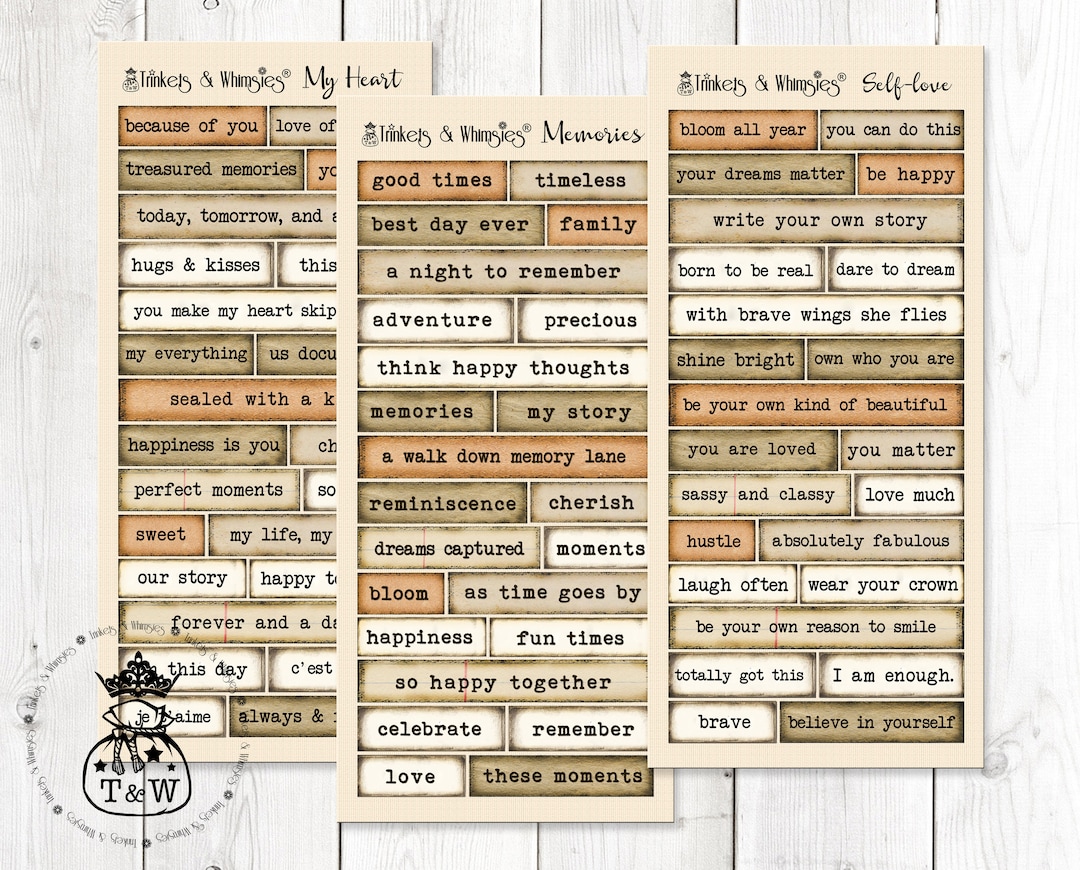 Trinkets & Whimsies® My Heart
because of you
love of
treasured memories
yo
today, tomorrow, and a
hugs & kisses
this
you make my heart skip
my everything
us docu
sealed with a k
happiness is you
ch
perfect moments
so
sweet
my life, my
our story
happy to
forever and a da
this day
c'est
je t'aime
always &
Trinkets & Whimsies® Memories
good times
timeless
best day ever
family
a night to remember
adventure
precious
think happy thoughts
memories
my story
a walk down memory lane
reminiscence
cherish
dreams captured
moments
bloom
as time goes by
happiness
fun times
so happy together
celebrate
remember
love
these moments
Trinkets & Whimsies® Self-love
bloom all year
you can do this
your dreams matter
be happy
write your own story
born to be real
dare to dream
with brave wings she flies
shine bright
own who you are
be your own kind of beautiful
you are loved
you matter
sassy and classy
love much
hustle
absolutely fabulous
laugh often
wear your crown
be your own reason to smile
totally got this
I am enough.
brave
believe in yourself
T & W
Trinkets & Whimsies